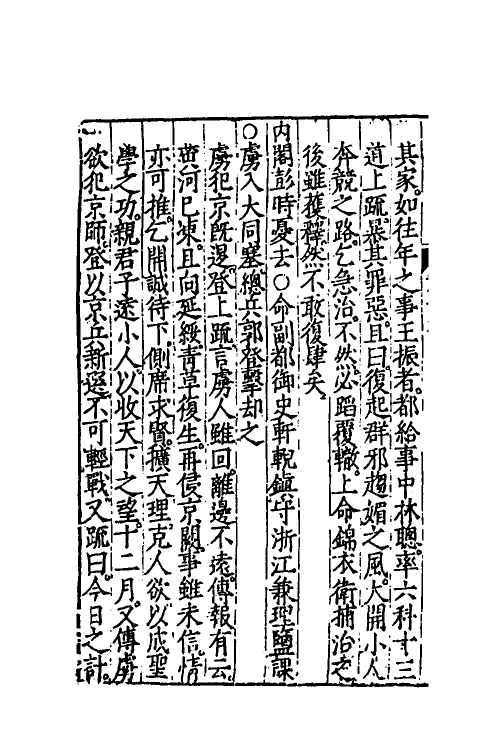 其家。如往年之事王振者。都給事中林聰。率六科十三
道上疏。暴其罪惡。且曰。復起群邪趨媚之風。大開小人
奔競之路。乞急治。不然。必蹈覆轍。上命錦衣衛捕治之
後雖獲釋。然不敢復肆矣。
內閣彭時憂去○命副都御史軒輗鎮守浙江兼理鹽課
○虜入大同塞。總兵郭登擊却之
虜犯京既退。登上疏言虜人雖回。離邊不遠。傳報有云。
黃河已凍。且向延綏。青草復生。再侵京關。事雖未信。情
亦可推。乞開誠待下。側席求賢。擴天理。克人欲。以成聖
學之功。親君子。遠小人。以收天下之望。十二月。又傳虜
欲犯京師。登以京兵新選。不可輕戰。又疏曰。今日之計。